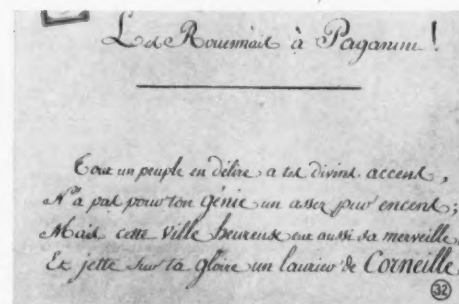 Les Rouennais à Paganini !
Tout un peuple en délire a tes divins accens,
N'a pas pour ton génie un assez pur encens ;
Mais cette ville heureuse eut aussi sa merveille
Et jette sur ta gloire un laurier de Corneille.
32